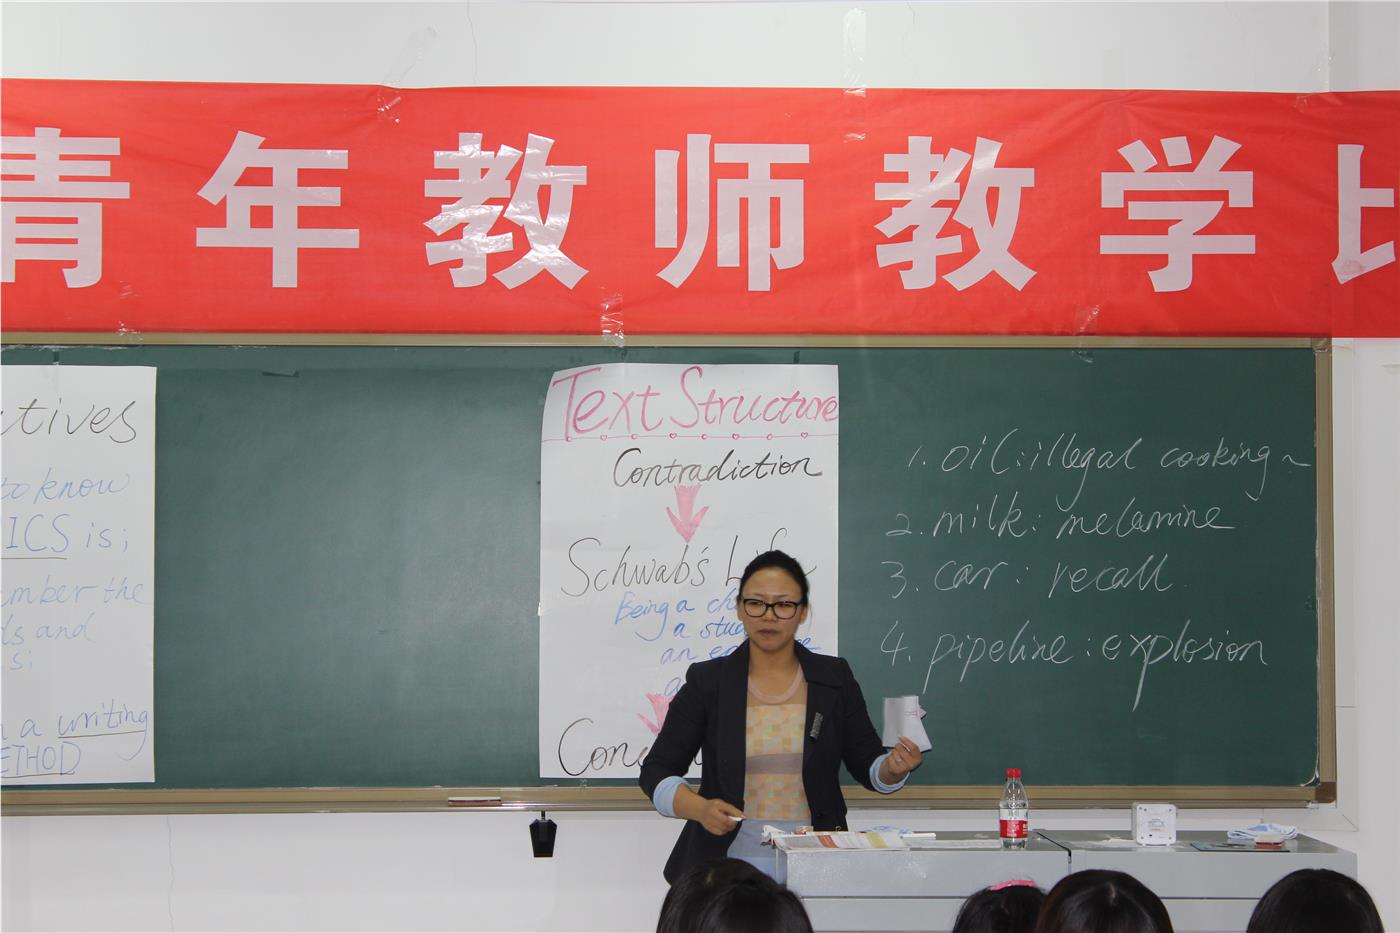 青年教师教学比
ctives
to know
ICS is;
ember the
ds and
s;
a writing
ETHOD
Text Structure
Contradiction
Schwab's
Being a
a
an
a
1. oil: illegal cooking~
2. milk: melamine
3. car: recall
4. pipeline: explosion